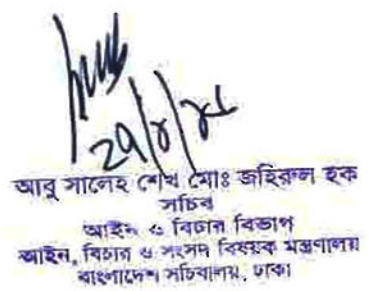 আবু সালেহ শেখ মোঃ জহিরুল হক
সচিব
আইন ও বিচার বিভাগ
আইন, বিচার ও সংসদ বিষয়ক মন্ত্রণালয়
বাংলাদেশ সচিবালয়, ঢাকা